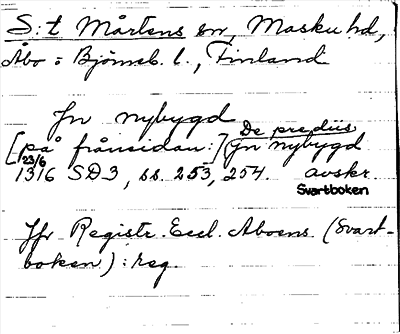 S:t Mårtens sn, Masku hd,
Åbo o Björneb. l., Finland
Jn nybygd
De prediis
[på frånsidan:] Jn nybygd
23/6
1316 SD3, ss. 253, 254. avskr.
Svartboken
Jfr Registr. Eccl. Aboens (Svart-
boken): reg.